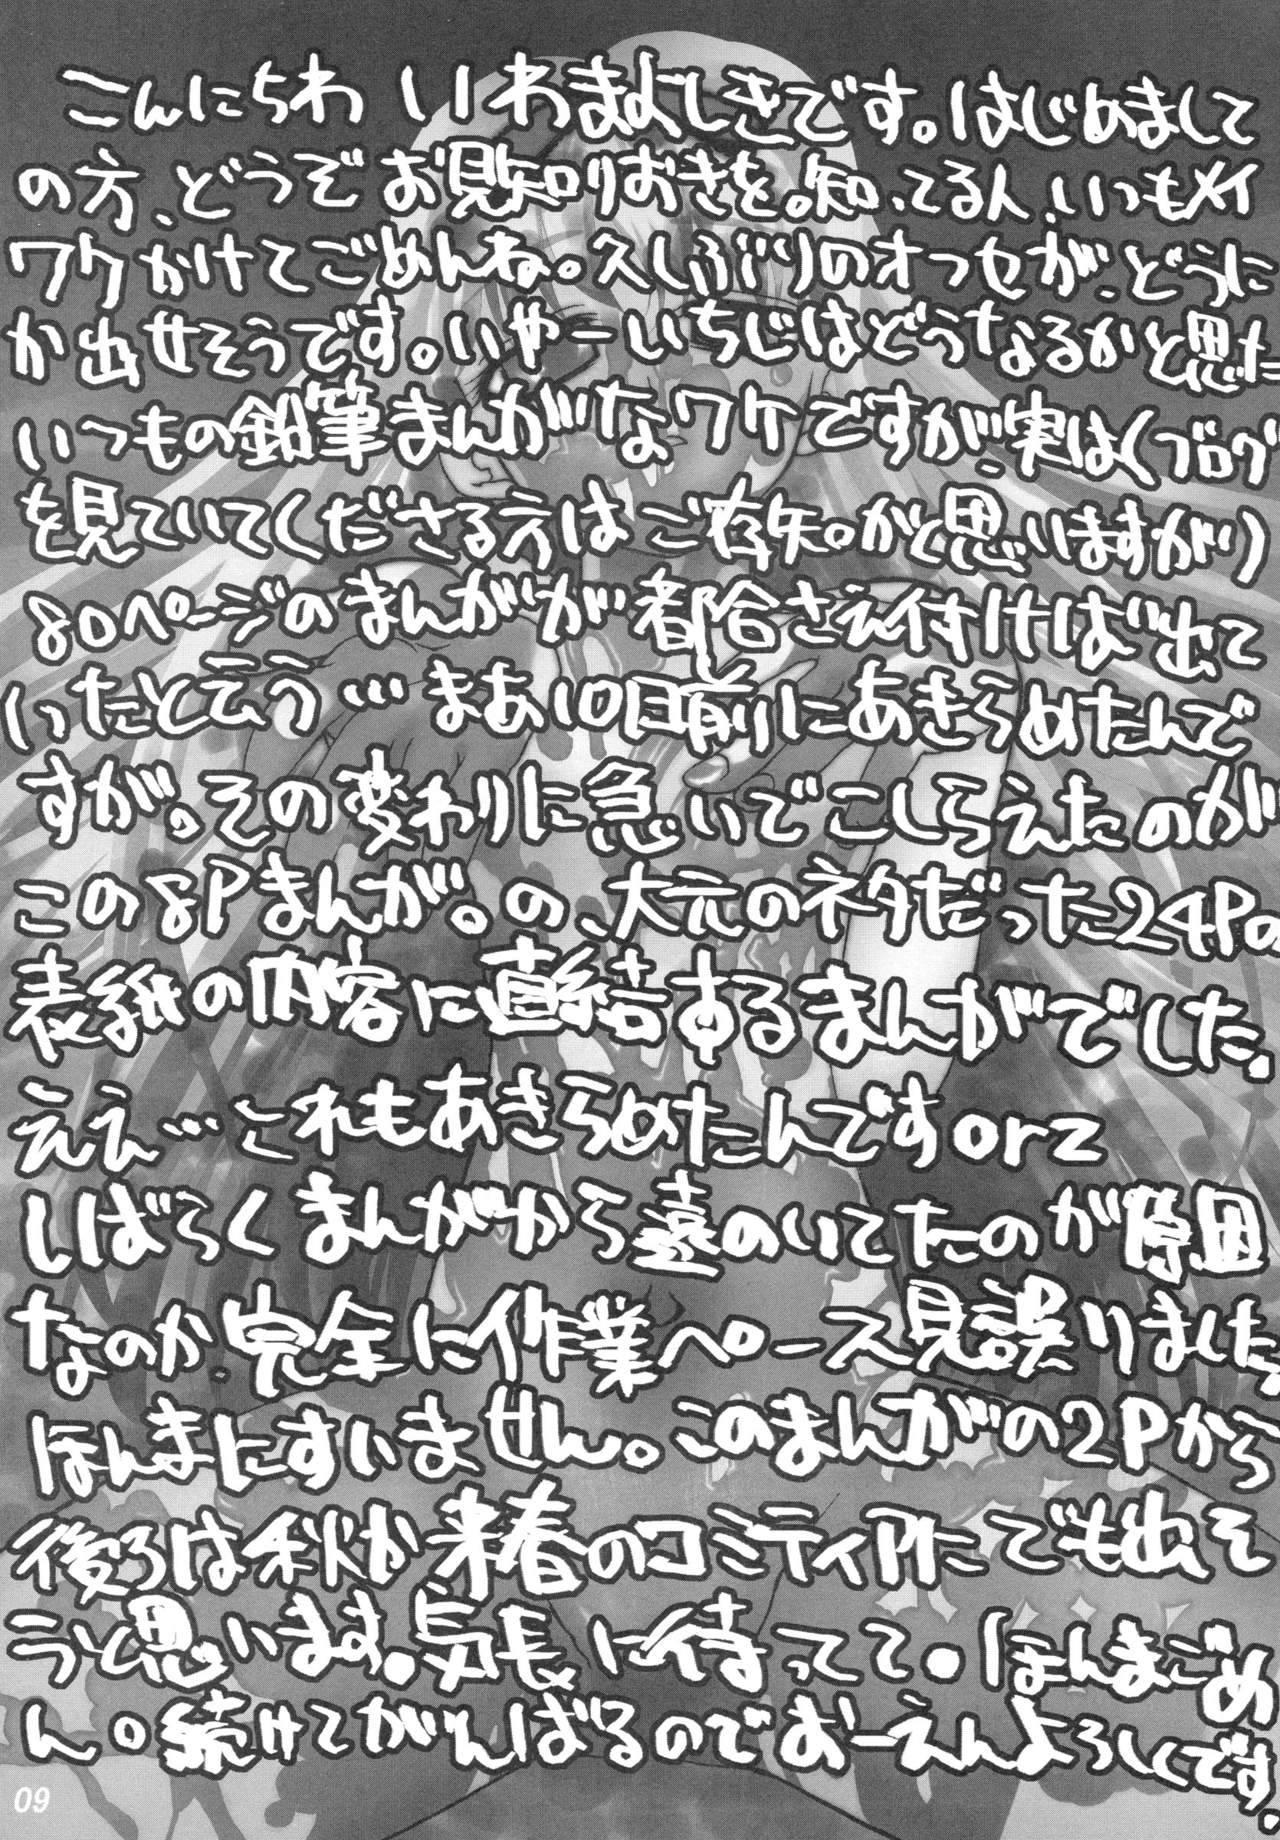 こんにちわ いわまよしきです。はじめまして
の方、どうぞお見知りおきを。知ってる人、いつもメイ
ワクかけてごめんね。久しぶりのオフセが、どうに
か出せそうです。いやーいちじはどうなるかと思た
いつもの鉛筆まんがなワケですが、実は(ブログ
を見ていてくださる方はご存知。かと思いますがり
80ページのまんがが都合さえ付けば出て
いったと云う…まあ10日前にあきらめたんで
すが。その変わりに急いでこしらえたのが
この8Pまんが。の、大元のネタだった24Pの
表紙の内容に直結するまんがでした。
ええ…これもあきらめたんですorz
しばらくまんがから遠のいてたのが原因
なのか、完全に作業ペース見誤りました。
ほんまにすいません。このまんがの2Pから
後ろは秋か来春のコミティアにでも出そ
うと思います。気長に待ってて。ほんまごめ
ん。続けてがんばるのでおーえんよろしくです。
09